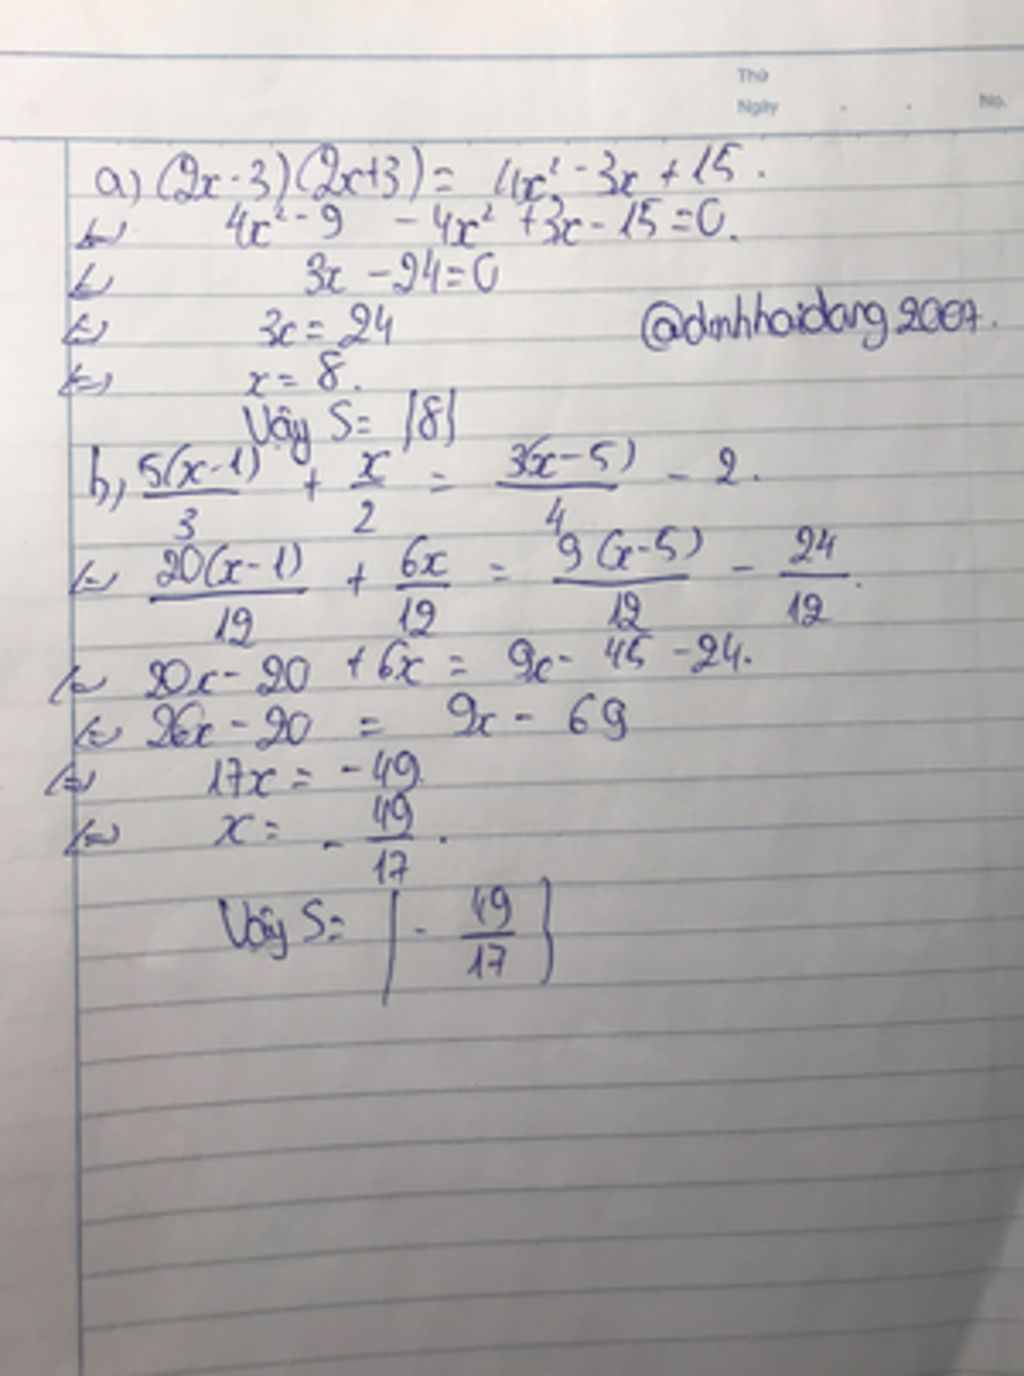 Thứ
Ngày . . No.
a) (2x-3)(2x+3) = 4x² - 3x + 15.
<=> 4x² - 9 - 4x² + 3x - 15 = 0.
<=> 3x - 24 = 0
<=> 3x = 24
@dinhhaidang2007.
<=> x = 8.
Vậy S = {8}
b, 5(x-1)/3 + x/2 = 3(x-5)/4 - 2.
<=> 20(x-1)/12 + 6x/12 = 9(x-5)/12 - 24/12.
<=> 20x - 20 + 6x = 9x - 45 - 24.
<=> 26x - 20 = 9x - 69
<=> 17x = -49.
<=> x = - 49/17.
Vậy S = {- 49/17}